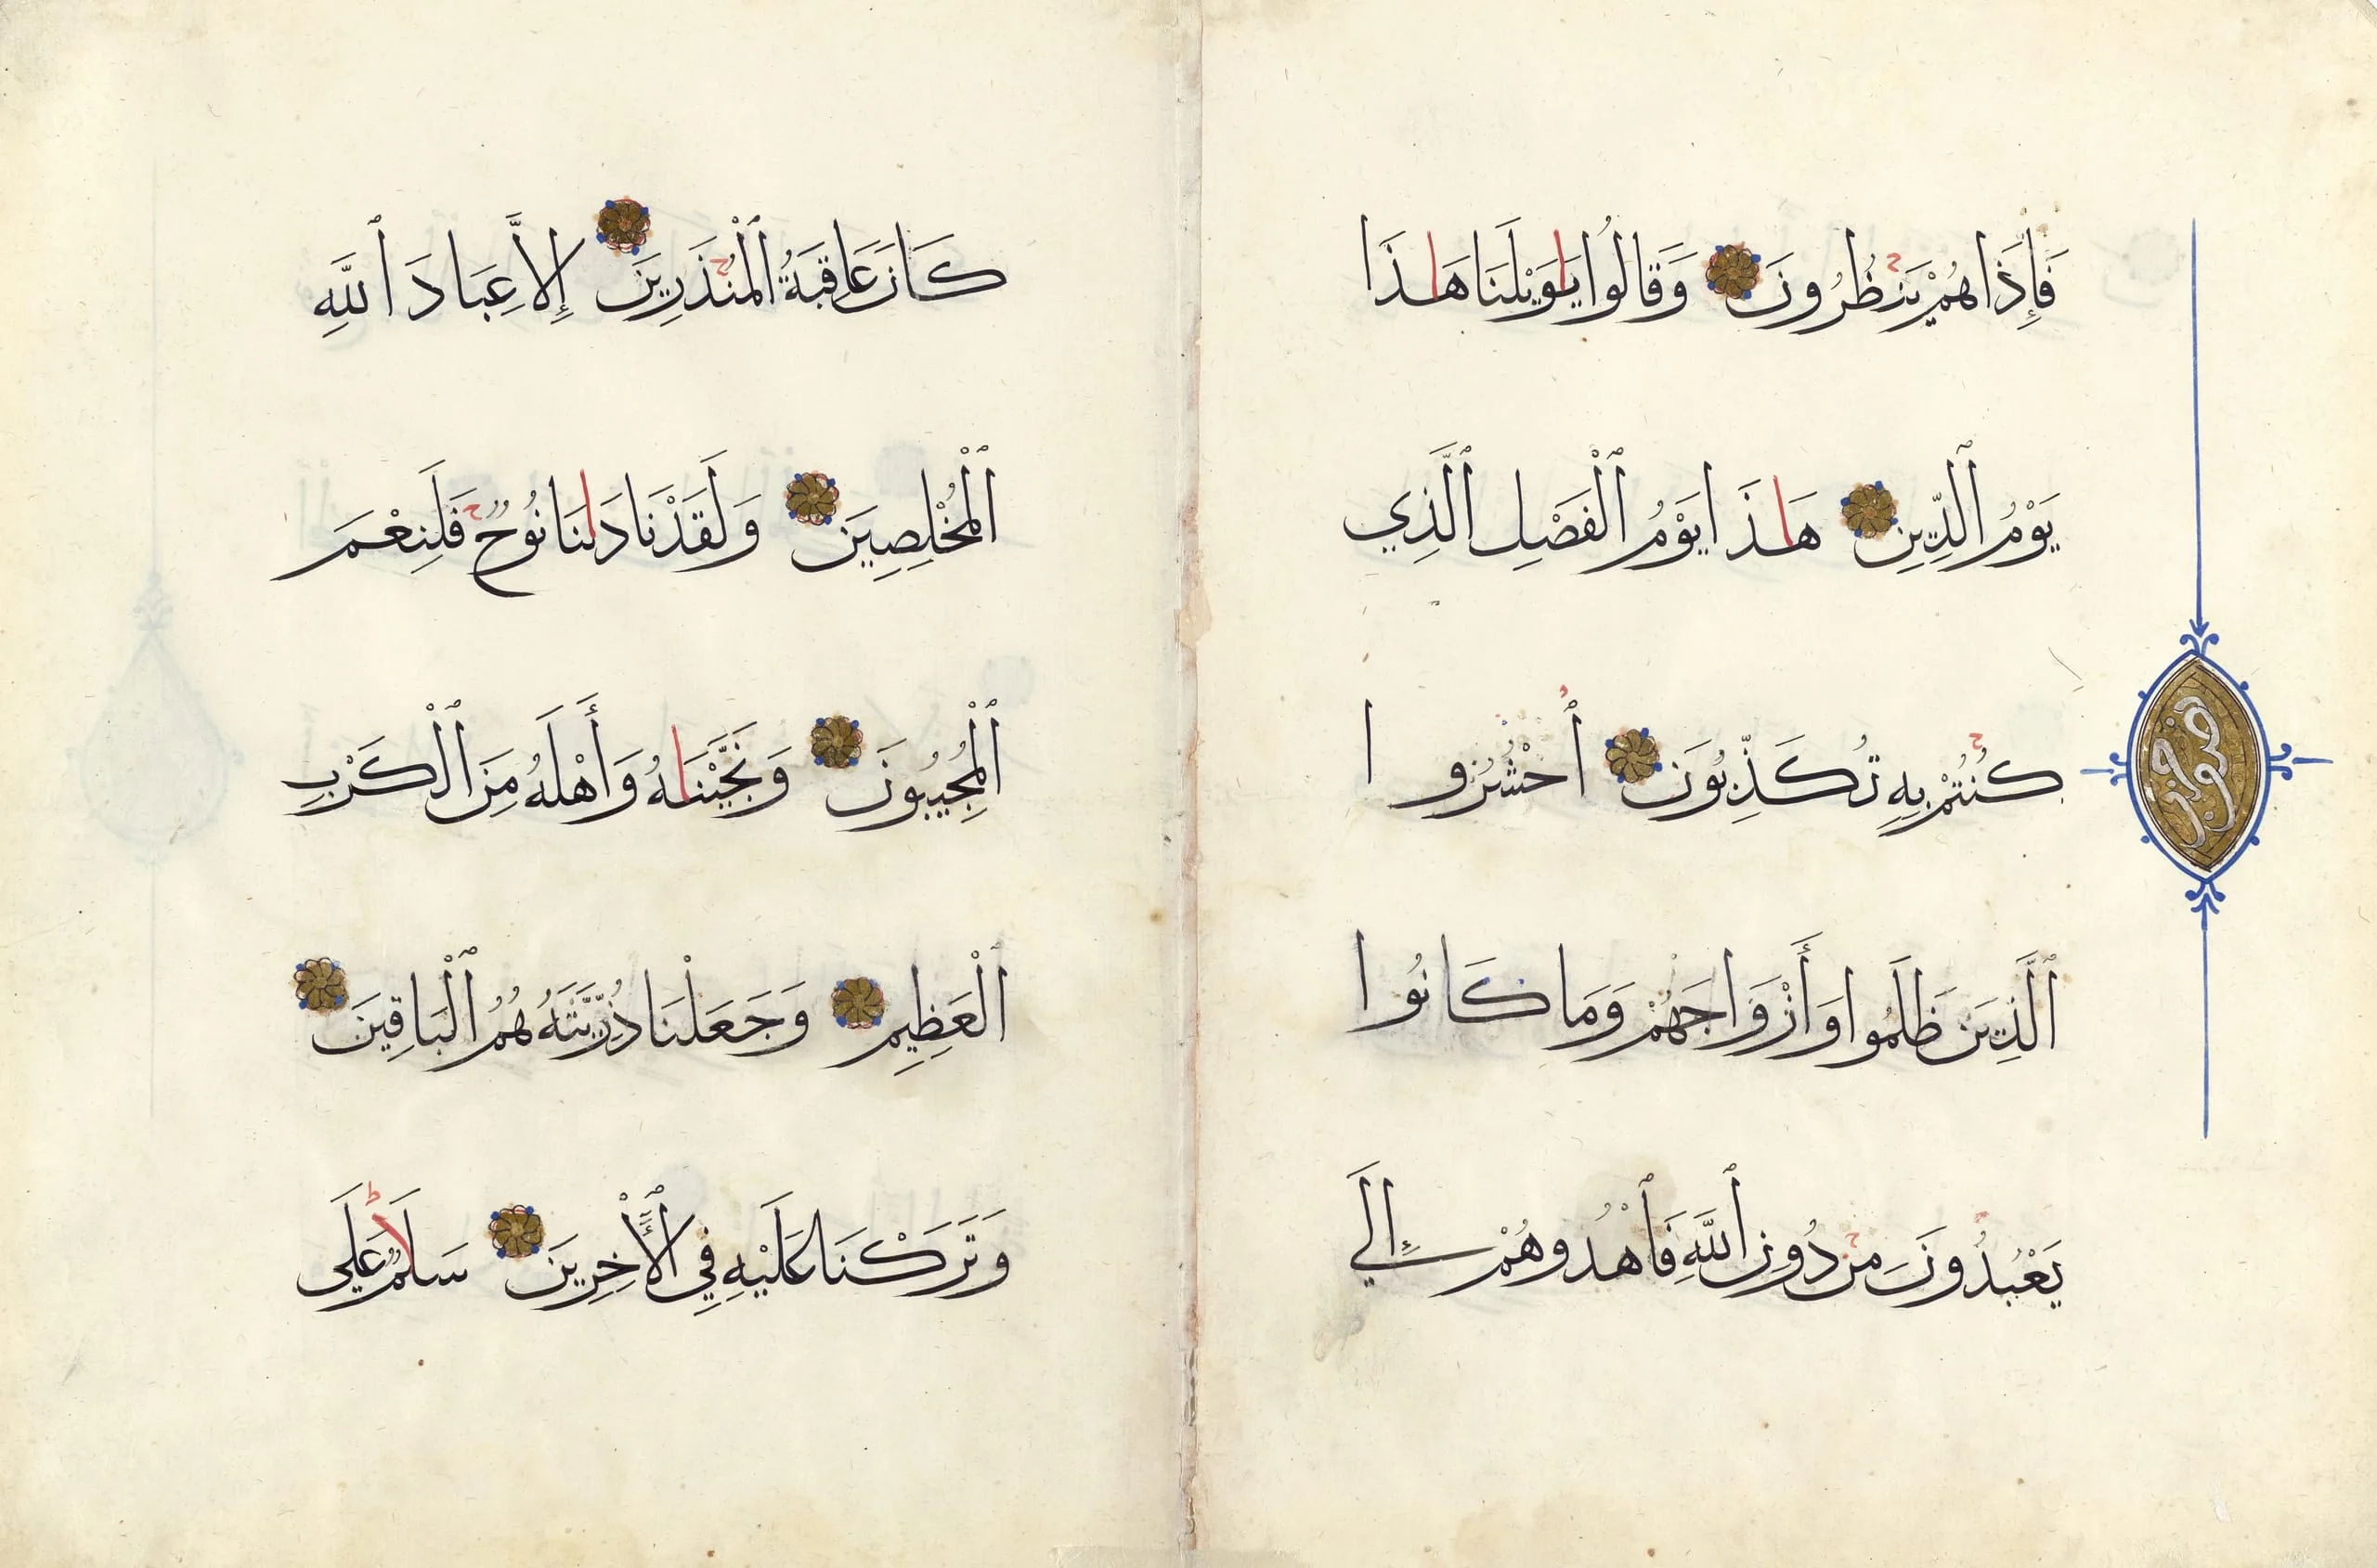 فَإِذَا هُمْ يَنظُرُونَ وَقَالُوا يَاوَيْلَنَا هَاذَا
يَوْمُ ٱلدِّينِ هَاذَا يَوْمُ ٱلْفَصْلِ ٱلَّذِي
كُنتُمْ بِهِ تُكَذِّبُونَ ٱحْشُرُوا
ٱلَّذِينَ ظَلَمُوا وَأَزْوَاجَهُمْ وَمَا كَانُوا
يَعْبُدُونَ مِن دُونِ ٱللَّهِ فَٱهْدُوهُمْ إِلَي
كَانَ عَاقِبَةُ ٱلْمُنْذَرِينَ إِلَّا عِبَادَ ٱللَّهِ
ٱلْمُخْلِصِينَ وَلَقَدْ نَادَانَا نُوحٌ فَلَنِعْمَ
ٱلْمُجِيبُونَ وَنَجَّيْنَاهُ وَأَهْلَهُ مِنَ ٱلْكَرْبِ
ٱلْعَظِيمِ وَجَعَلْنَا ذُرِّيَّتَهُ هُمُ ٱلْبَاقِينَ
وَتَرَكْنَا عَلَيْهِ فِي ٱلْأَخِرِينَ سَلَامٌ عَلَى